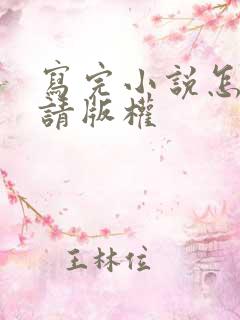 寫完小說怎
請版權
王林位